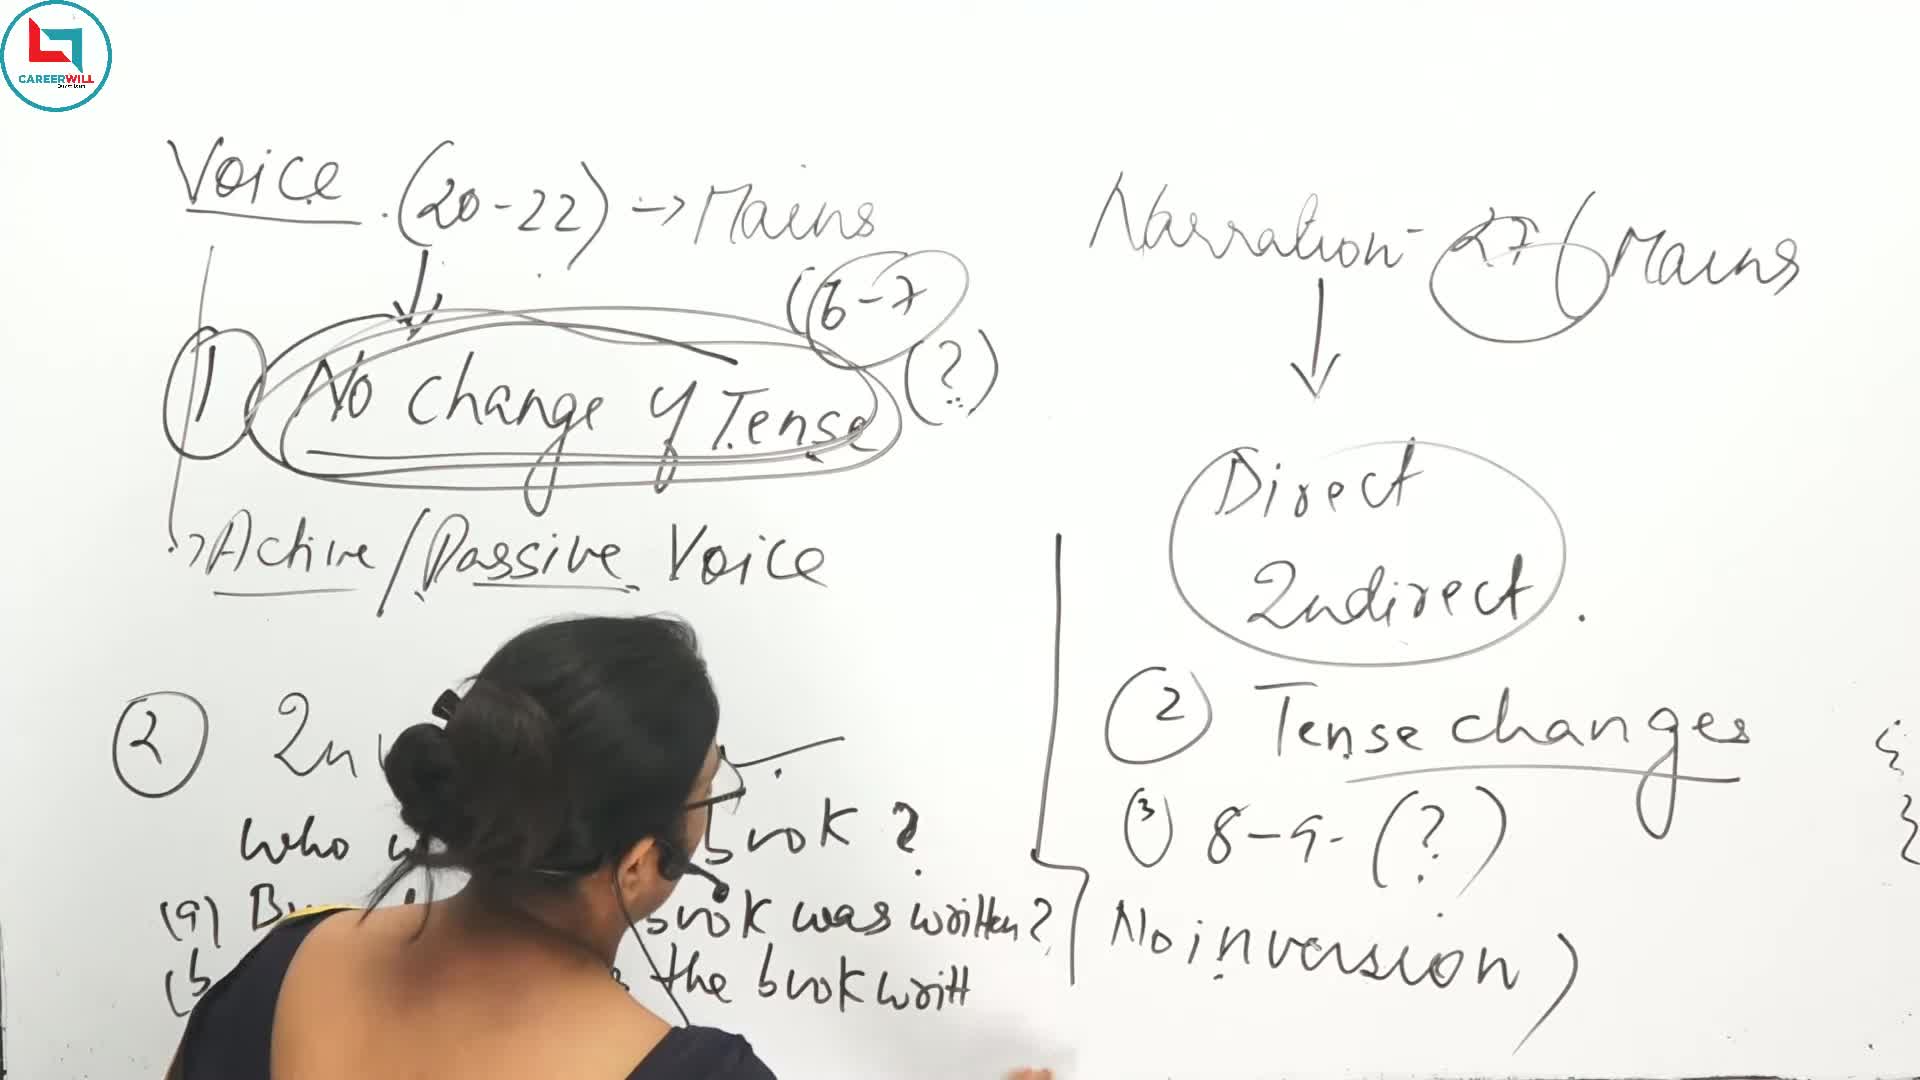 CAREERWILL
Voice (20-22) → Mains
(6-7
① No change of Tense (?)
→ Active/Passive Voice
②
who book ?
(a) By book was written?
(b the book writt
Narration - 27 (Mains
Direct
Indirect.
② Tense changes
③ 8-9- (?)
No inversion)